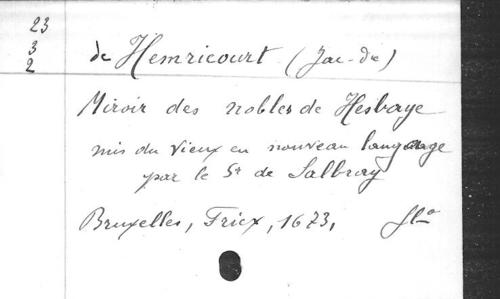 23
3
2
de Hemricourt (Jac-de)
Miroir des nobles de Hesbaye
mis du vieux en nouveau langage
par le Sr de Salbray
Bruxelles, Fricx, 1673, flo